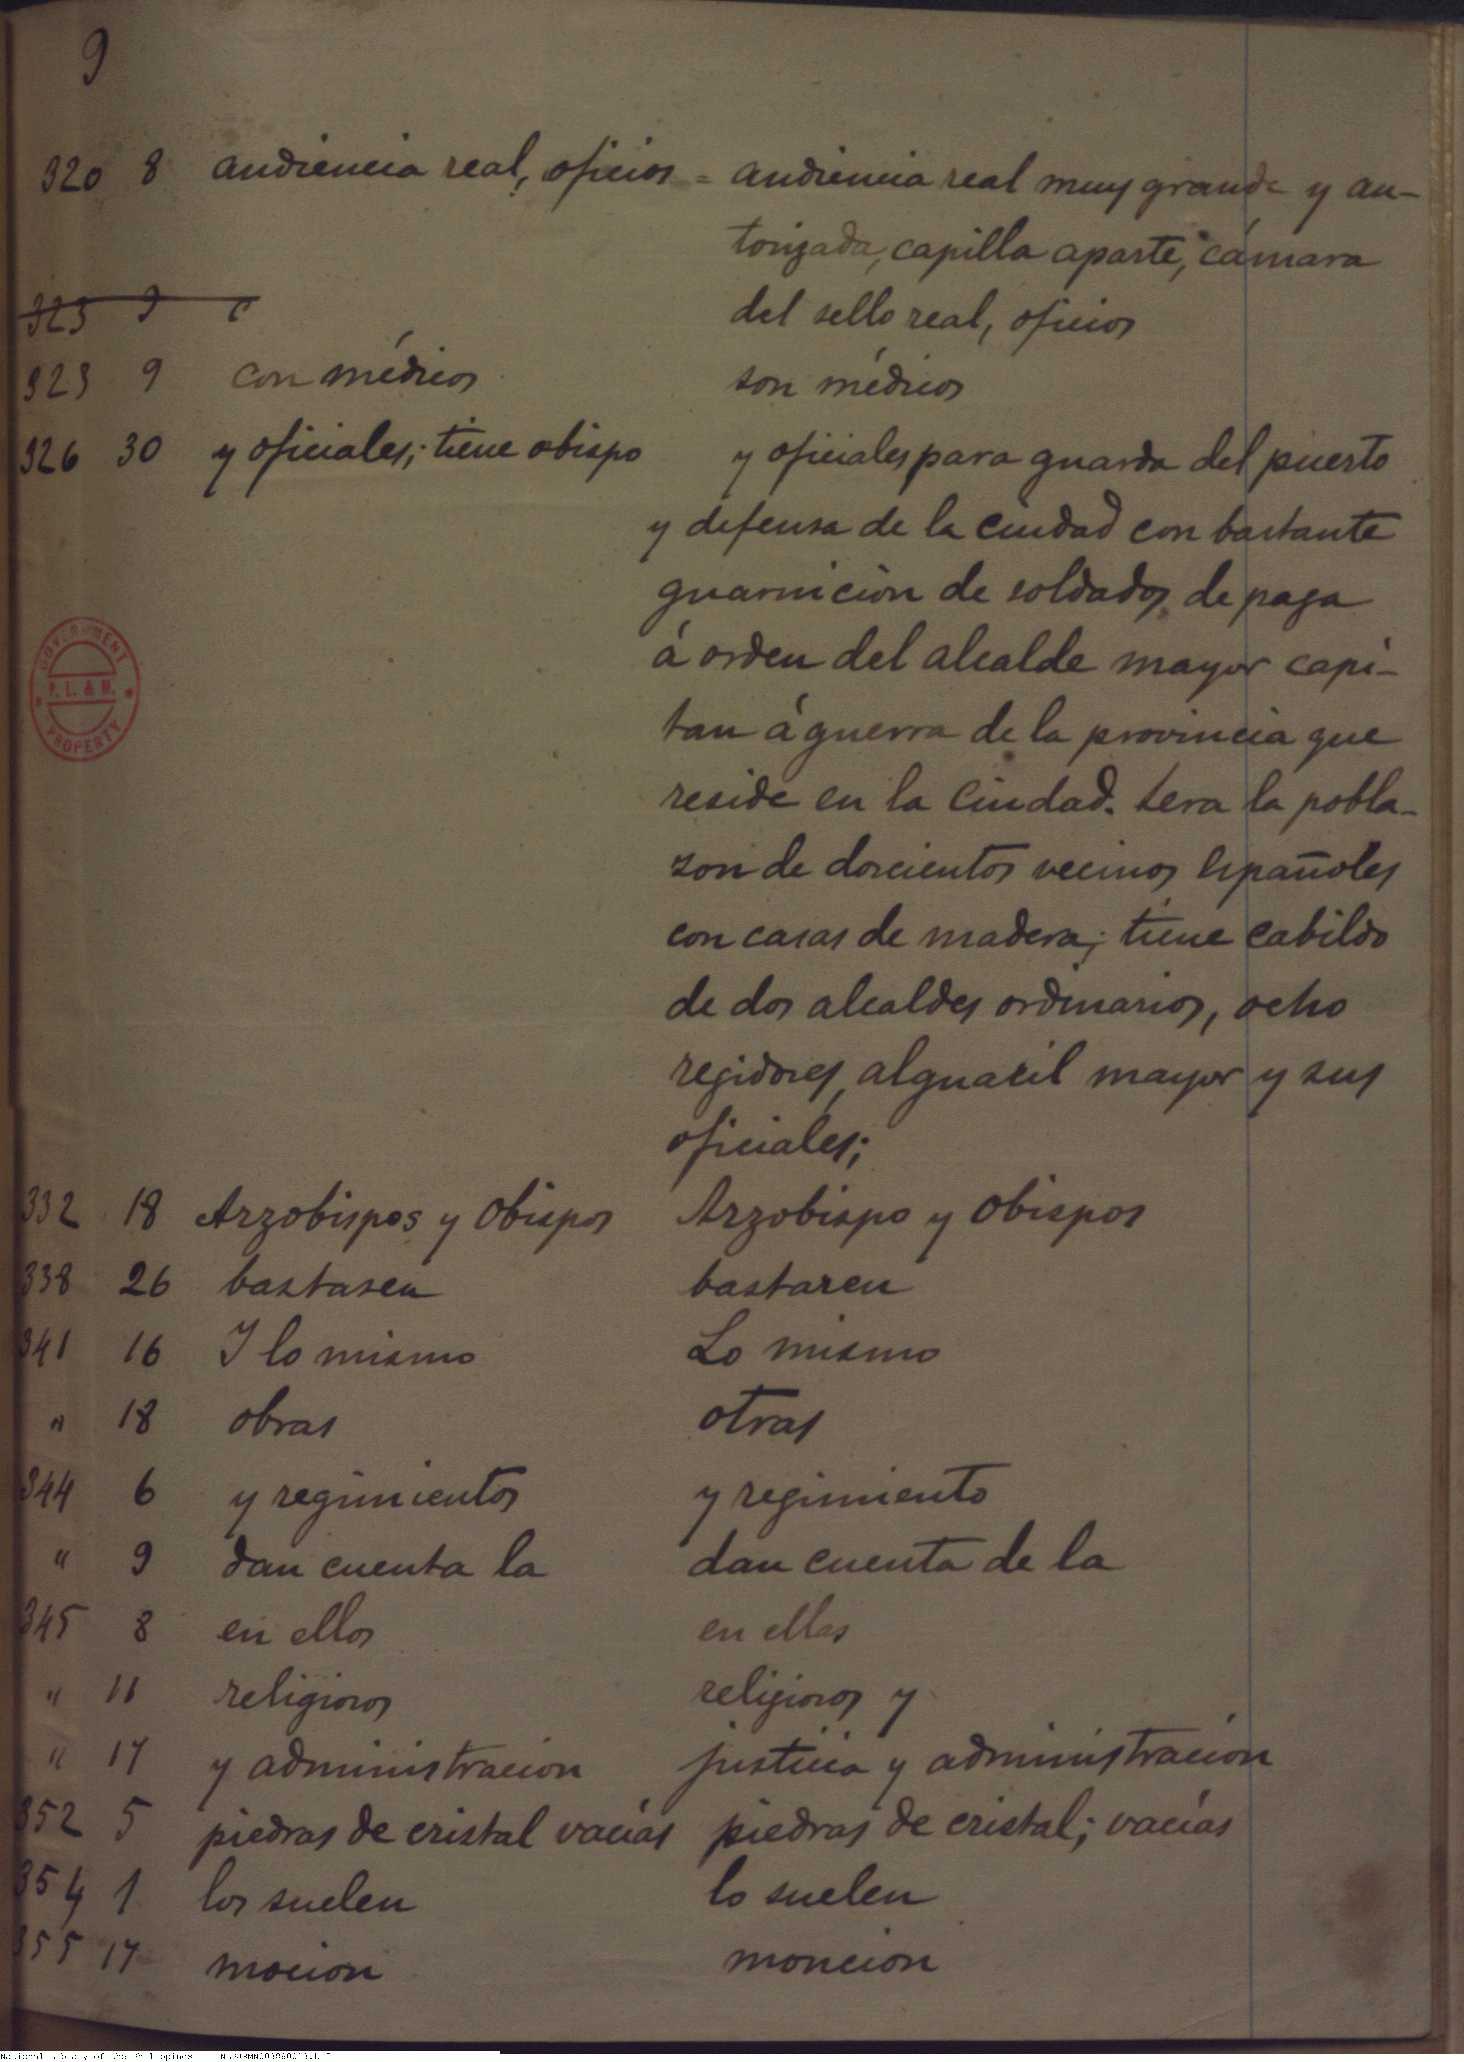 9
320 8 audiencia real, oficios = audiencia real muy grande y au-
torizada, capilla aparte, cámara
323 9 c
del sello real, oficios
323 9 con médicos son médicos
326 30 y oficiales; tiene obispo y oficiales para guarda del puerto
y defensa de la ciudad con bastante
guarnición de soldados de paga
á orden del alcalde mayor capi-
tan á guerra de la provincia que
reside en la ciudad. Sera la pobla-
zon de doscientos vecinos españoles
con casas de madera; tiene cabildo
de dos alcaldes ordinarios, ocho
regidores, alguacil mayor y sus
oficiales;
GOVERNMENT
P. L. & M.
PROPERTY
332 18 Arzobispos y Obispos Arzobispo y Obispos
338 26 bastasen bastaren
341 16 I lo mismo Lo mismo
" 18 obras otras
344 6 y regimientos y regimiento
" 9 dan cuenta la dan cuenta de la
345 8 en ellos en ellas
" 11 religiosos religiosos y
" 17 y administracion justicia y administracion
352 5 piedras de cristal vacías piedras de cristal; vacías
354 1 los suelen lo suelen
355 17 mocion moncion
National Library of the Philippines